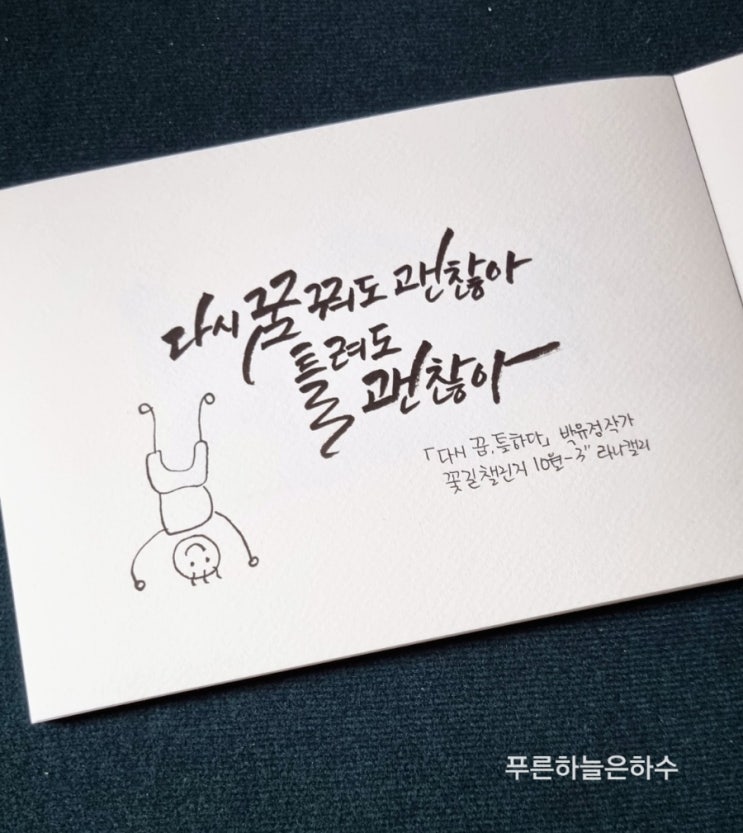 다시 꿈꿔도 괜찮아
틀려도
괜찮아
「다시 꿈, 틀하다」 박유정작가
꽃길챌린지 10월-3" 라나캘리
푸른하늘은하수